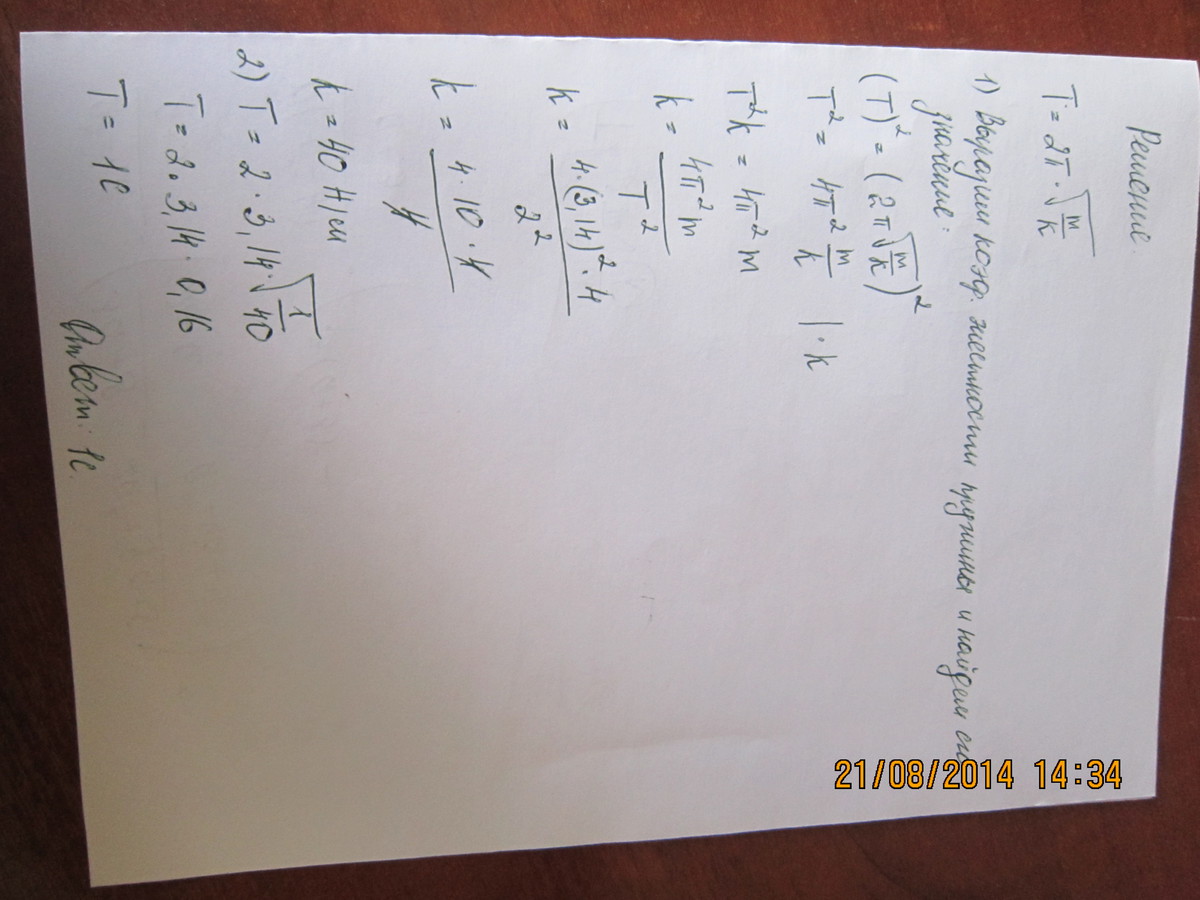 Решение.
T = 2π · √(m/k)
1) Выразим коэф. жесткости пружины и найдем его
значение:
(T)² = (2π√(m/k))²
T² = 4π² m/k | · k
T²k = 4π² m
k = 4π²m / T²
k = 4·(3,14)²·4 / 2²
k = 4·10·4 / 4
k = 40 Н/см
2) T = 2·3,14·√(1/40)
T = 2·3,14·0,16
T = 1с
Ответ: 1с.
21/08/2014 14:34